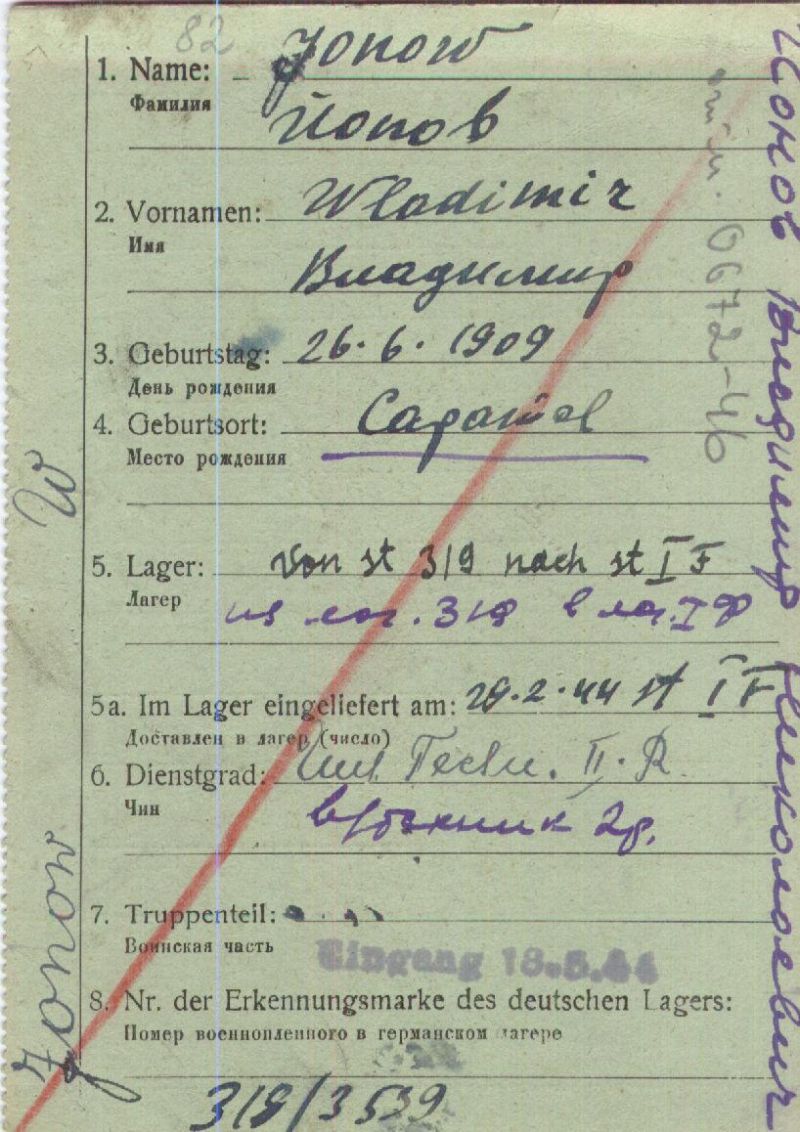 82
1. Name: Jonow
Фамилия Йонов
2. Vornamen: Wladimir
Имя
Владимир
3. Geburtstag: 26.6.1909
День рождения
4. Geburtsort: Саратов
Место рождения
5. Lager: von st 319 nach st I F
Лагер
из лаг. 319 в лаг. I Ф
5a. Im Lager eingeliefert am: 29.2.44 st I F
Доставлен в лагер (число)
6. Dienstgrad: Mil. Techn. II. R.
Чин
в/техник 2р.
7. Truppenteil:
Воинская часть
Eingang 18.5.44
8. Nr. der Erkennungsmarke des deutschen Lagers:
Номер военнопленного в германском лагере
319/3539
Jonow W
Ионов Владимир
0672-46